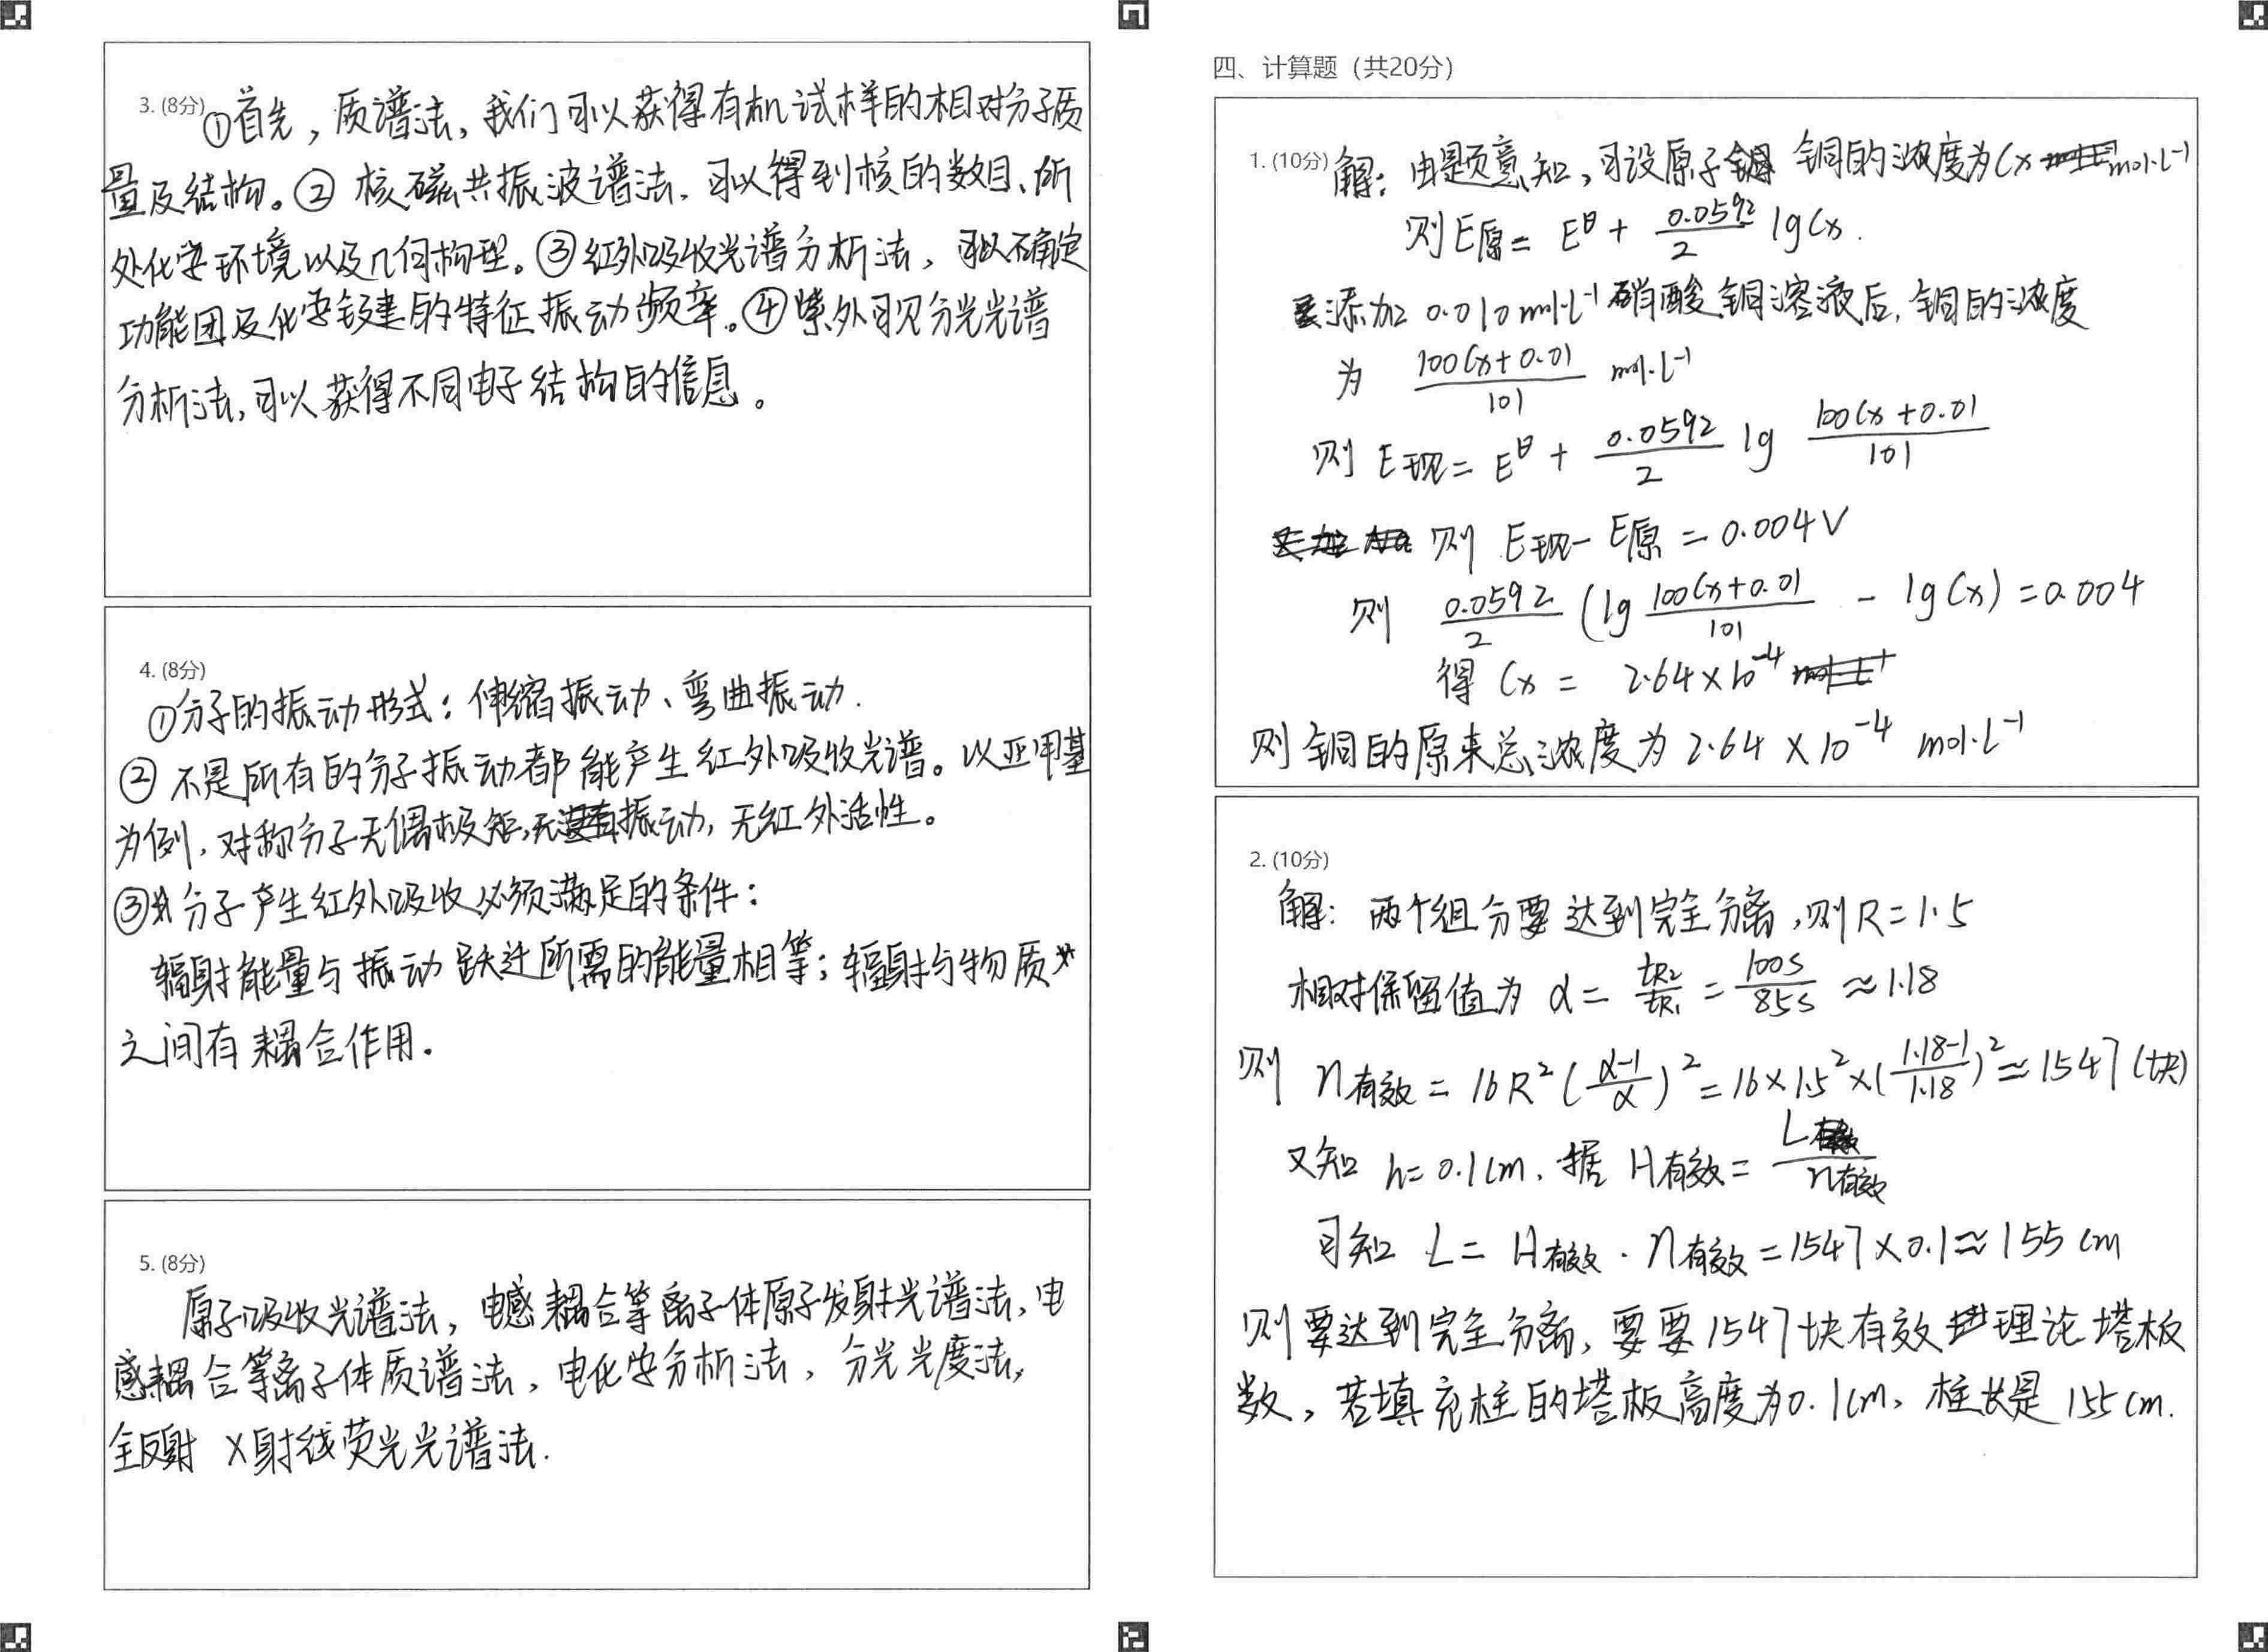 3. (8分) ①首先，质谱法，我们可以获得有机试样的相对分子质
量及结构。② 核磁共振波谱法，可以得到核的数目、所
处化学环境以及几何构型。③红外吸收光谱分析法，可以不确定
功能团及化学键的特征振动频率。④紫外可见分光光谱
分析法，可以获得不同电子结构的信息。
4. (8分)
①分子的振动形式：伸缩振动、弯曲振动.
② 不是所有的分子振动都能产生红外吸收光谱。以亚甲基
为例，对称分子无偶极矩，无振动，无红外活性。
③分子产生红外吸收必须满足的条件：
辐射能量与振动跃迁所需的能量相等；辐射与物质
之间有耦合作用.
5. (8分)
原子吸收光谱法，电感耦合等离子体原子发射光谱法，电
感耦合等离子体质谱法，电化学分析法，分光光度法，
全反射 X射线荧光光谱法.
四、计算题（共20分）
1. (10分) 解：由题意知，可设原子 铜的浓度为Cx mol·L⁻¹
则E原= E^θ + 0.0592/2 lgCx.
添加 0.010mol·L⁻¹ 硝酸铜溶液后，铜的浓度
为 (100Cx+0.01)/101 mol·L⁻¹
则 E现= E^θ + 0.0592/2 lg (100Cx+0.01)/101
则 E现-E原 = 0.004V
则 0.0592/2 (lg (100Cx+0.01)/101 - lgCx) = 0.004
得 Cx = 2.64×10⁻⁴
则铜的原来总浓度为 2.64 × 10⁻⁴ mol·L⁻¹
2. (10分)
解：两个组分要达到完全分离，则R=1.5
相对保留值为 α= tR2/tR1 = 100s/85s ≈1.18
则 n有效 = 16R²(α-1/α)² = 16×1.5²×(1.18-1/1.18)² ≈ 1547(块)
又知 h=0.1cm. 据 H有效= L/n有效
可知 L= H有效 · n有效 = 1547×0.1≈155 cm
则要达到完全分离，要要1547块有效理论塔板
数，若填充柱的塔板高度为0.1cm，柱长是 155cm.